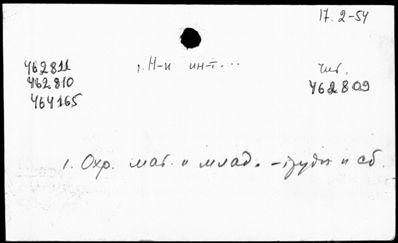 17. 2-54
462811
462810
464165
1. Н-и ин-т...
чит.
462809
1. Охр. мат. и млад. - труды и сб.